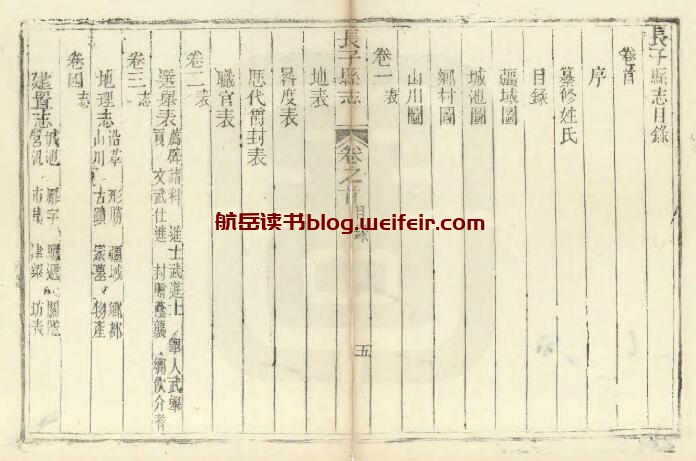 長子縣志目錄
卷首
序
目錄
纂修姓氏
疆域圖
城池圖
鄉村圖
山川圖
卷一 表
地表
晷度表
歷代爵封表
職官表
卷二 表
選舉表 薦辟 諸科 進士 武進士 舉人 武舉
貢 文武仕進 封贈 蔭襲 鄉飲介耆
卷三 志
地理志 沿革 形勝 疆域 鄉都
山川 古蹟 冢墓 物產
卷四 志
建置志 城池 廨宇 關隘
營汛 市集 津梁 坊表
長子縣志
卷之首
目錄
五
航岳读书blog.weifeir.com